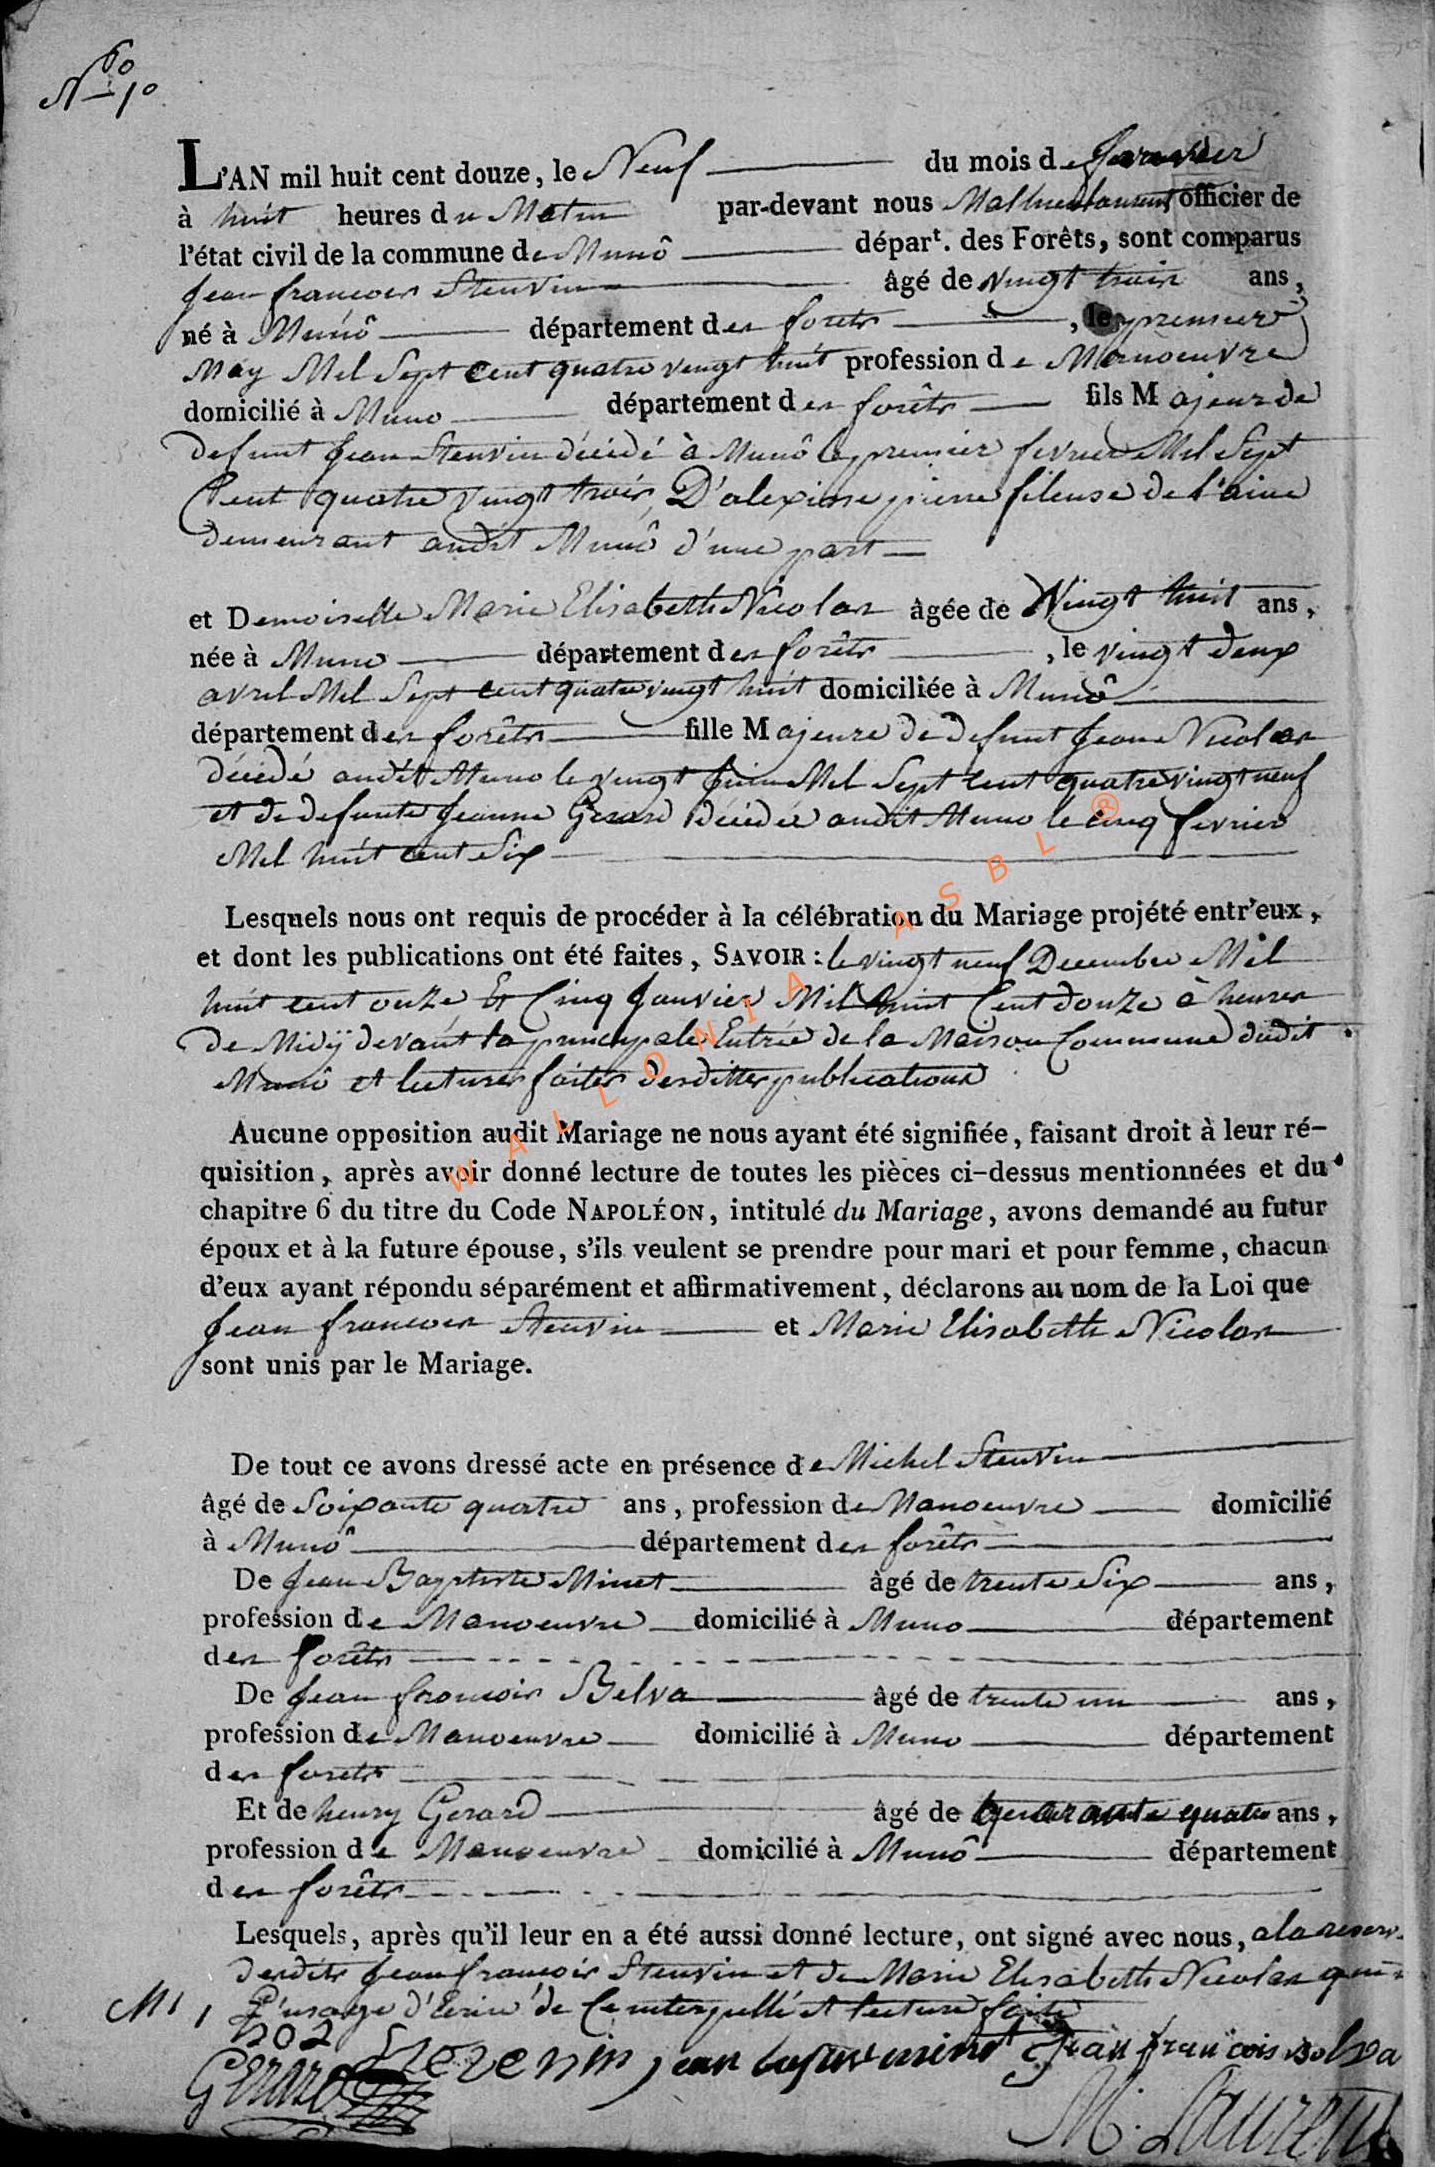 60
N° 10
L'AN mil huit cent douze, le Neuf du mois de Janvier
à huit heures du Matin par-devant nous Mathieu Laurent officier de
l'état civil de la commune de Munô départ. des Forêts, sont comparus
Jean francois Steuvin âgé de vingt trois ans,
né à Munô département des forets, le premier
May Mil Sept Cent quatre vingt huit profession de Manoeuvre
domicilié à Muno département des forêts fils Majeur de
defunt Jean Steuvin décédé à Munô le premier fevrier Mil Sept
Cent quatre vingt trois, D'alexisse pierre fileuse de laine
demeurant audit Munô d'une part
et Demoiselle Marie Elisabeth Nicolas âgée de Vingt huit ans,
née à Muno département des forêts, le vingt deux
avril Mil Sept cent quatre vingt huit domiciliée à Munô
département des forêts fille Majeure de defunt Jean Nicolas
décédé audit Muno le vingt Juin Mil Sept cent quatre vingt neuf
et de defunte Jeanne Gerard décédée audit Muno le cinq fevrier
Mil huit cent Six
Lesquels nous ont requis de procéder à la célébration du Mariage projété entr'eux,
et dont les publications ont été faites, SAVOIR : le vingt neuf Decembre Mil
huit cent onze, Et Cinq Janvier Mil huit Cent douze à heures
de Midÿ devant la principale Entrée de la Maison Commune dudit
Munô et lectures faites desdittes publications
Aucune opposition audit Mariage ne nous ayant été signifiée, faisant droit à leur ré-
quisition, après avoir donné lecture de toutes les pièces ci-dessus mentionnées et du
chapitre 6 du titre du Code NAPOLÉON, intitulé du Mariage, avons demandé au futur
époux et à la future épouse, s'ils veulent se prendre pour mari et pour femme, chacun
d'eux ayant répondu séparément et affirmativement, déclarons au nom de la Loi que
Jean francois Steuvin et Marie Elisabeth Nicolas
sont unis par le Mariage.
De tout ce avons dressé acte en présence de Michel Steuvin
âgé de Soixante quatre ans, profession de Manoeuvre domicilié
à Munô département des forêts
De Jean Baptiste Minet âgé de trente Six ans,
profession de Manoeuvre domicilié à Muno département
des forêts
De Jean francois Belva âgé de trente un ans,
profession de Manoeuvre domicilié à Muno département
des forets
Et de henry Gerard âgé de quarante quatre ans,
profession de Manoeuvre domicilié à Munô département
des forêts
Lesquels, après qu'il leur en a été aussi donné lecture, ont signé avec nous, a la reserv.
desdits Jean francois Steuvin et de Marie Elisabeth Nicolas
l'usage d'Ecrire de Ce interpellé et lecture faite
Gerard jean minet Jean francois Belva
M. Laurent
WALLONIA ASBL ®